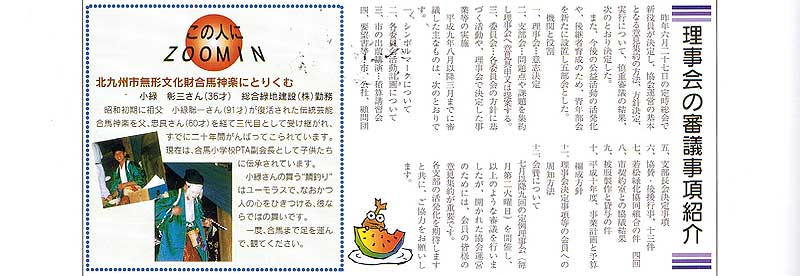 理事会の審議事項紹介
昨年六月二十七日の定時総会で
新役員が決定し、協会運営の基本
となる意見集約の方法、方針決定、
実行について、慎重審議の結果、
次のとおり決定した。
また、今後の公益活動の活発化
や、後継者育成のため、青年部会
を新たに設置し五部会とした。
機関と役割
一、理事会…意志決定
二、支部会…問題点や課題を集約
し理事会へ意見具申又は提案する。
三、委員会…各委員会の方針に基
づく活動や、理事会で決定した事
業等の実施
平成九年八月以降三月までに審
議した主なものは、次のとおりで
す。
一、シンボルマークについて
二、各委員会活動計画について
三、市の出前講演…積算講習会
四、要望書等…市、公社、顧問団
五、支部長会決定事項
六、協賛・後援行事、十三件
七、若松緑化協同組合の件 四回
八、市契約室との協議結果
九、被服製作と貸与の件
十、平成十年度、事業計画と予算
編成方針
十一、理事会決定事項等の会員への
周知方法
十二、会費について
七月以降九回の定例理事会(毎
月第二火曜日)を開催し、
以上のような審議を行いま
したが、開かれた協会運営
のためには、会員の皆様の
意見集約が重要です。
各支部の活発化を期待します
と共に、ご協力をお願いし
この人に
ZOOMIN
北九州市無形文化財合馬神楽にとりくむ
小緑 彰三さん(36才) 総合緑地建設(株)勤務
昭和初期に祖父 小緑聡一さん(91才)が復活された伝統芸能
合馬神楽を父、忠良さん(60才)を経て三代目として受け継がれ、
すでに二十年間がんばってこられています。
現在は、合馬小学校PTA副会長として子供たち
に伝承されています。
小緑さんの舞う“鯛釣り”
はユーモラスで、なおかつ
人の心をひきつける、彼な
らではの舞いです。
一度、合馬まで足を運ん
で、観てください。